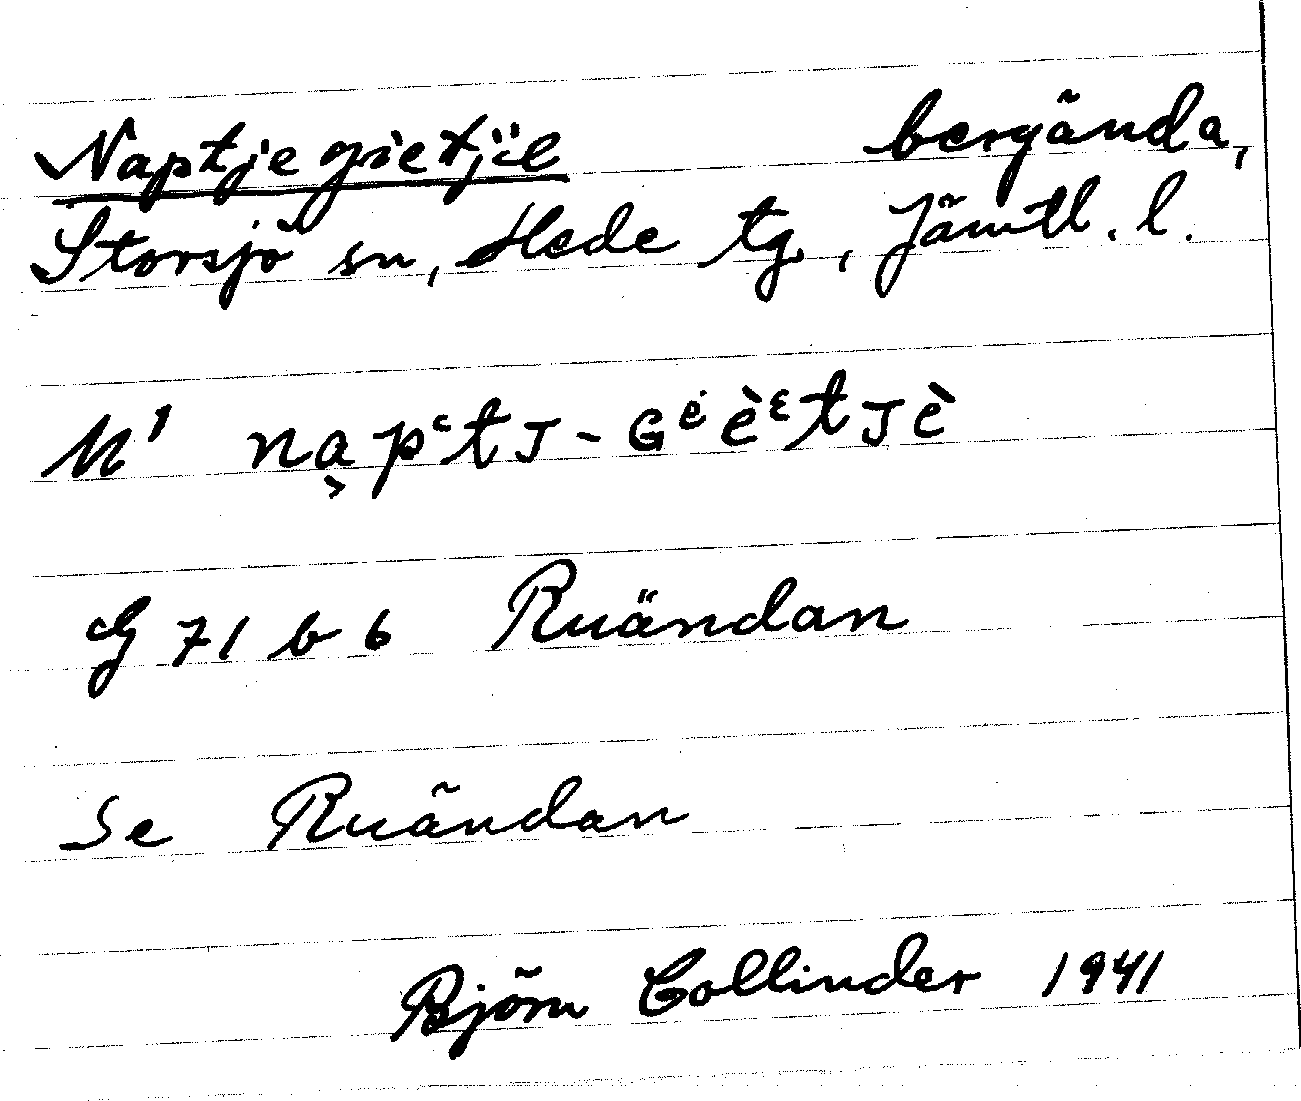 Naptjegietjie bergända,
Storsjö sn, Hede tg, Jämtl. l.
M' na̬pᶜtᴊ-ɢᵉ̇èᵋtᴊè
G 71 b 6 Ruändan
Se Ruändan
Björn Collinder 1941